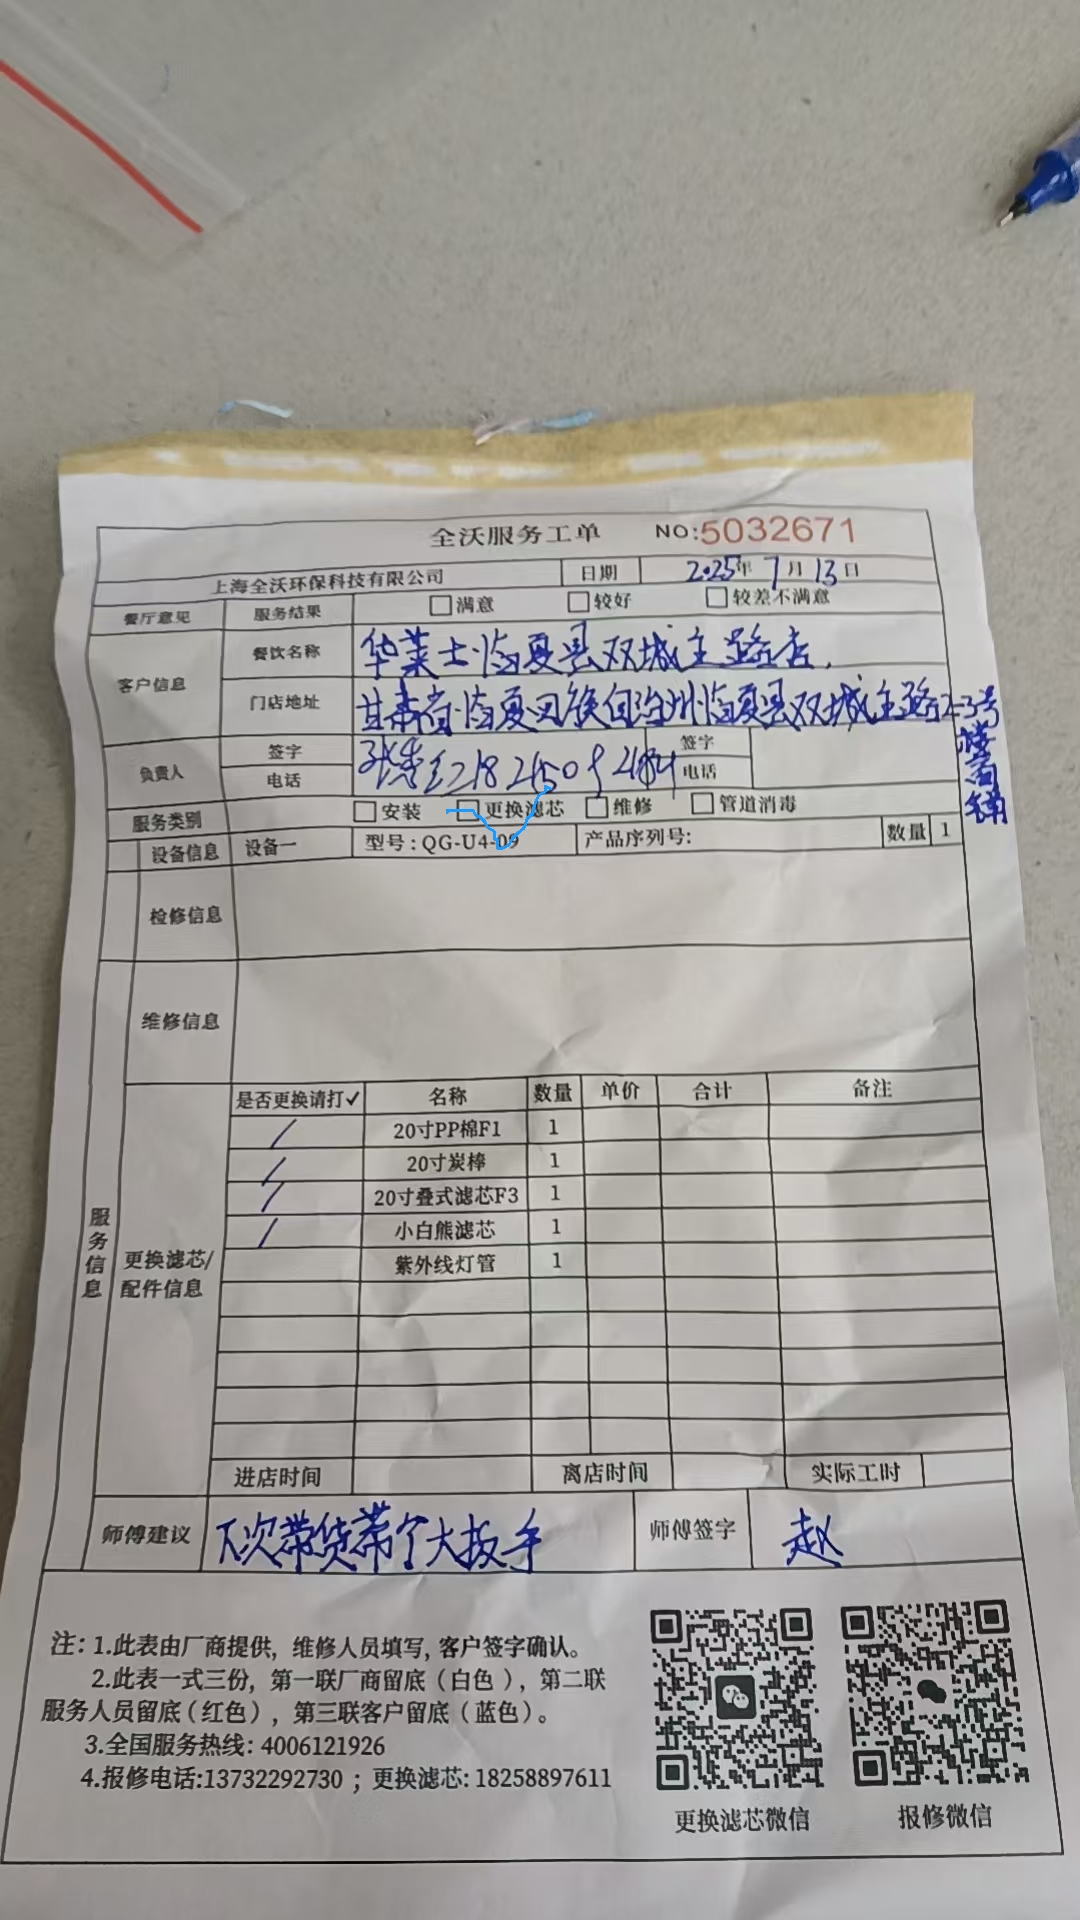 全沃服务工单 NO:5032671
上海全沃环保科技有限公司 日期 2025年7月13日
餐厅意见 服务结果 满意 较好 较差不满意
客户信息
餐饮名称 华莱士·临夏县双城主路店
门店地址 甘肃省·临夏回族自治州临夏县双城主路2-3号
楼商铺
负责人 签字 签字
电话 电话
服务类别 安装 更换滤芯 维修 管道消毒
设备信息 设备一 型号:QG-U4-09 产品序列号: 数量 1
检修信息
维修信息
是否更换请打✓ 名称 数量 单价 合计 备注
/ 20寸PP棉F1 1
/ 20寸炭棒 1
/ 20寸叠式滤芯F3 1
/ 小白熊滤芯 1
紫外线灯管 1
服务信息
更换滤芯/
配件信息
进店时间 离店时间 实际工时
师傅建议 下次带货带个大扳手 师傅签字 赵
注: 1.此表由厂商提供，维修人员填写，客户签字确认。
2.此表一式三份，第一联厂商留底（白色），第二联
服务人员留底（红色），第三联客户留底（蓝色）。
3.全国服务热线: 4006121926
4.报修电话:13732292730 ；更换滤芯: 18258897611
更换滤芯微信 报修微信